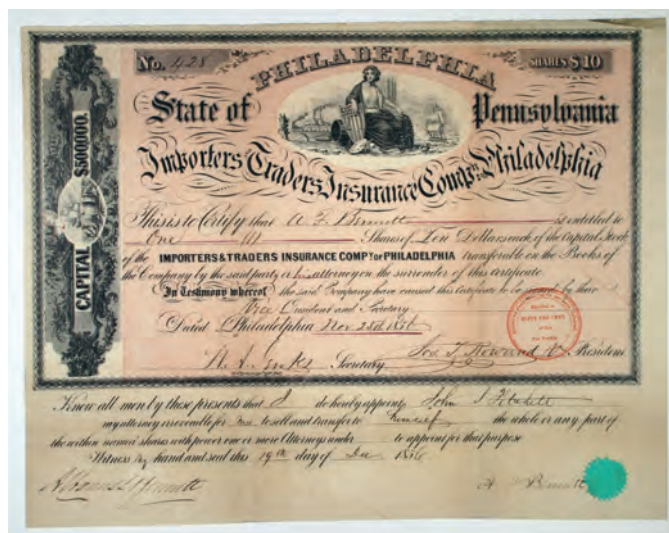 No. 428
PHILADELPHIA
SHARES $10
State of Pennsylvania
Importers & Traders Insurance Comp'y Philadelphia
CAPITAL $500000.
This is to Certify that A F Bennett is entitled to
One (1) Shares of Ten Dollars each of the Capital Stock
of the IMPORTERS & TRADERS INSURANCE COMPY OF PHILADELPHIA transferable on the Books of
the Company by the said party or his attorney on the surrender of this certificate
In Testimony whereof the said Company have caused this Certificate to be signed by their
Vice President and Secretary
Dated Philadelphia Nov 25th 1856
Secretary President
Know all men by these presents that I do hereby appoint John
my attorney irrevocable for me to sell and transfer to himself the whole or any part of
the within named shares with power one or more Attorneys under to appoint for that purpose
Witness my hand and seal this 19th day of Dec 1856
A Bennett